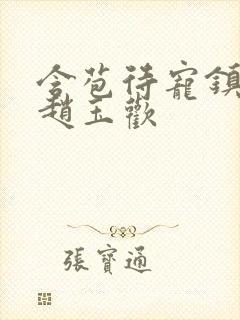 含苞待寵鎮
趙玉歡
張寶通